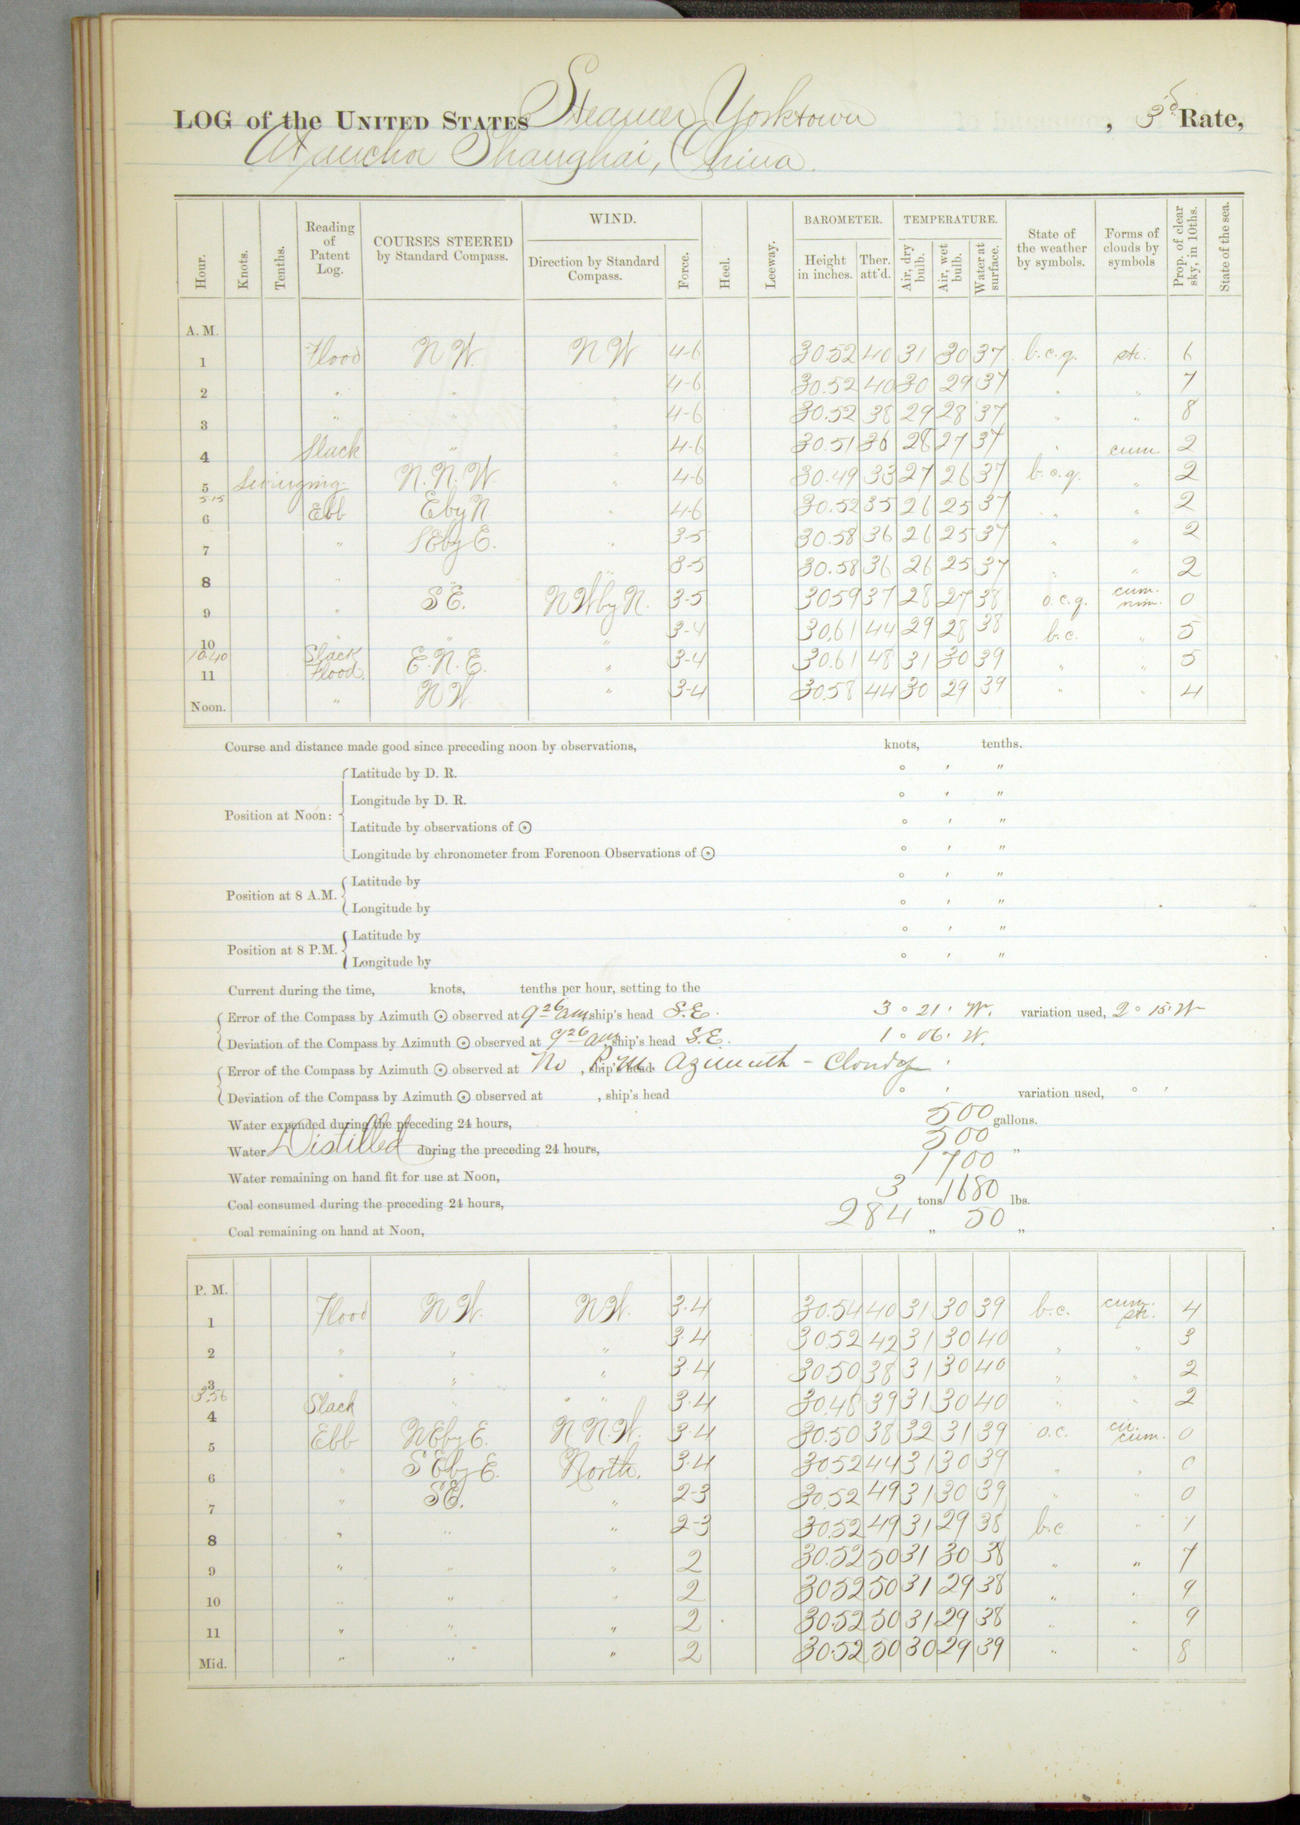 LOG of the UNITED STATES Steamer Yorktown, 3d Rate,
At anchor Shanghai, China.
Hour. Knots. Tenths. Reading of Patent Log. COURSES STEERED by Standard Compass. WIND. Direction by Standard Compass. Force. Heel. Leeway. BAROMETER. Height in inches. Ther. att'd. TEMPERATURE. Air, dry bulb. Air, wet bulb. Water at surface. State of the weather by symbols. Forms of clouds by symbols Prop. of clear sky, in 10ths. State of the sea.
A. M.
1 Flood NW. NW 4-6 30.52 40 31 30 37 b.c.q. str. 6
2 " " " 4-6 30.52 40 30 29 37 " " 7
3 " " " 4-6 30.52 38 29 28 37 " " 8
4 Slack " " 4-6 30.51 36 28 27 37 " cum. 2
5 Swinging N.N.W. " 4-6 30.49 33 27 26 37 b.c.q. " 2
5.15
6 Ebb EbyN " 4-6 30.52 35 26 25 37 " " 2
7 " SEbyE. " 3-5 30.58 36 26 25 37 " " 2
8 " " " 3-5 30.58 36 26 25 37 " " 2
9 " SE. NWbyN. 3-5 30.59 37 28 27 38 o.c.q. cum. nim. 0
10 " " " 3-4 30.61 44 29 28 38 b.c. " 5
10.40 Slack
11 Flood. E.N.E. " 3-4 30.61 48 31 30 39 " " 5
Noon. " NW " 3-4 30.58 44 30 29 39 " " 4
Course and distance made good since preceding noon by observations, knots, tenths.
Position at Noon: Latitude by D. R. ° ′ ″
Longitude by D. R. ° ′ ″
Latitude by observations of ☉ ° ′ ″
Longitude by chronometer from Forenoon Observations of ☉ ° ′ ″
Position at 8 A.M. Latitude by ° ′ ″
Longitude by ° ′ ″
Position at 8 P.M. Latitude by ° ′ ″
Longitude by ° ′ ″
Current during the time, knots, tenths per hour, setting to the
Error of the Compass by Azimuth ☉ observed at 9 26 am, ship's head S.E. 3 ° 21 ′ W. variation used, 2 ° 15 ′ W
Deviation of the Compass by Azimuth ☉ observed at 9 26 am, ship's head S.E. 1 ° 06 ′ W.
Error of the Compass by Azimuth ☉ observed at No P.M. , ship's head Azimuth - Cloudy ′
Deviation of the Compass by Azimuth ☉ observed at , ship's head ° ′ variation used, ° ′
Water expended during the preceding 24 hours, 500 gallons.
Water Distilled during the preceding 24 hours, 500 "
Water remaining on hand fit for use at Noon, 1700
Coal consumed during the preceding 24 hours, 3 tons 1680 lbs.
Coal remaining on hand at Noon, 284 " 50 "
P. M.
1 Flood NW. NW. 3-4 30.54 40 31 30 39 b.c. cum. str. 4
2 " " " 3-4 30.52 42 31 30 40 " " 3
3 " " " 3-4 30.50 38 31 30 40 " " 2
3.56
4 Slack " " 3-4 30.48 39 31 30 40 " " 2
5 Ebb NEbyE. NNW. 3-4 30.50 38 32 31 39 o.c. cu. cum. 0
6 " SEbyE. North. 3-4 30.52 44 31 30 39 " " 0
7 " SE. " 2-3 30.52 49 31 30 39 " " 0
8 " " " 2-3 30.52 49 31 29 38 b.c " 1
9 " " " 2 30.52 50 31 30 38 " " 7
10 " " " 2 30.52 50 31 29 38 " " 9
11 " " " 2 30.52 50 31 29 38 " " 9
Mid. " " " 2 30.52 50 30 29 39 " " 8